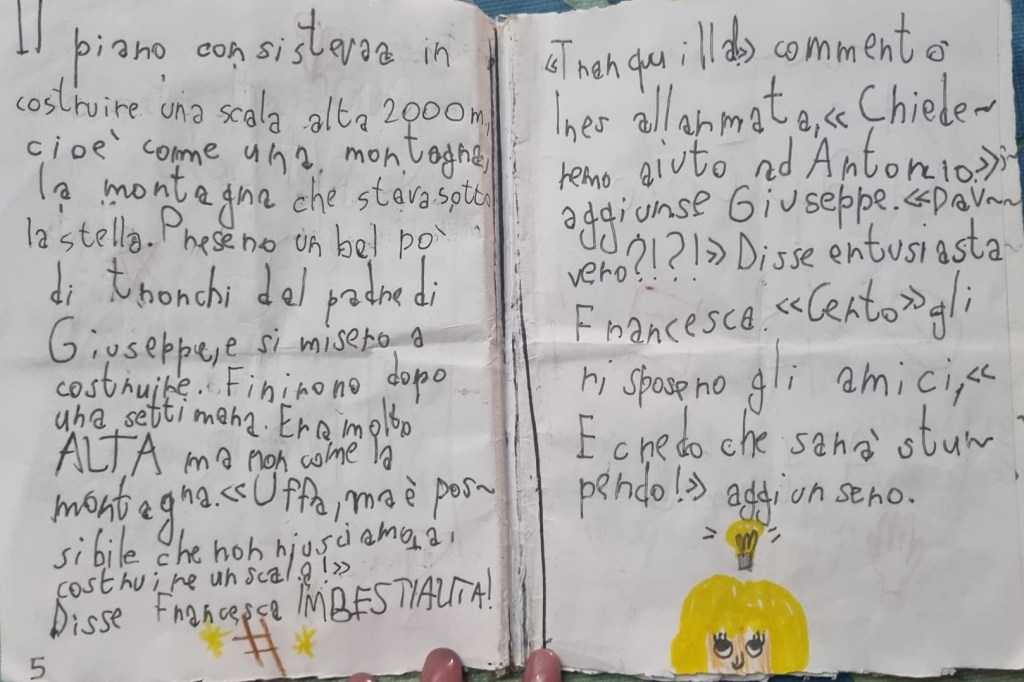 Il piano consistevaa in
costruire una scala alta 2000m,
cioè come una montagna,
la montagna che stava sotto
la stella. Presero un bel pò
di tronchi dal padre di
Giuseppe, e si misero a
costruire. Finirono dopo
una settimana. Era molto
ALTA ma non come la
montagna. «Uffa, ma è pos~
sibile che non riusciamo a
costruire un scala!»
Disse Francesca IMBESTIALITA!
5
«Tranquilla» commentò
Ines allarmata, « Chiede~
remo aiuto ad Antonio.»
aggiunse Giuseppe. «Dav~
vero?!?!?!» Disse entusiasta
Francesca. «Certo» gli
risposero gli amici, «
E credo che sarà stu
pendo!» aggiunsero.